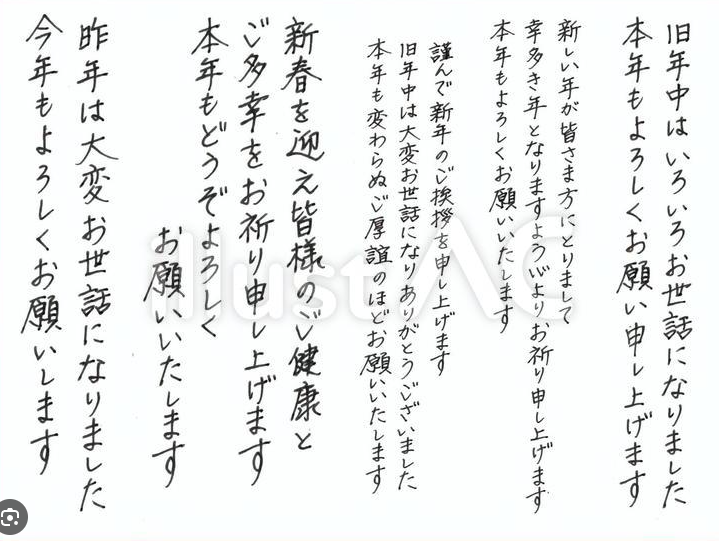 旧年中はいろいろお世話になりました
本年もよろしくお願い申し上げます
新しい年が皆さま方にとりまして
幸多き年となりますよう心よりお祈り申し上げます
本年もよろしくお願いいたします
謹んで新年のご挨拶を申し上げます
旧年中は大変お世話になりありがとうございました
本年も変わらぬご厚誼のほどお願いいたします
新春を迎え皆様のご健康と
ご多幸をお祈り申し上げます
本年もどうぞよろしく
お願いいたします
昨年は大変お世話になりました
今年もよろしくお願いします
illustAC